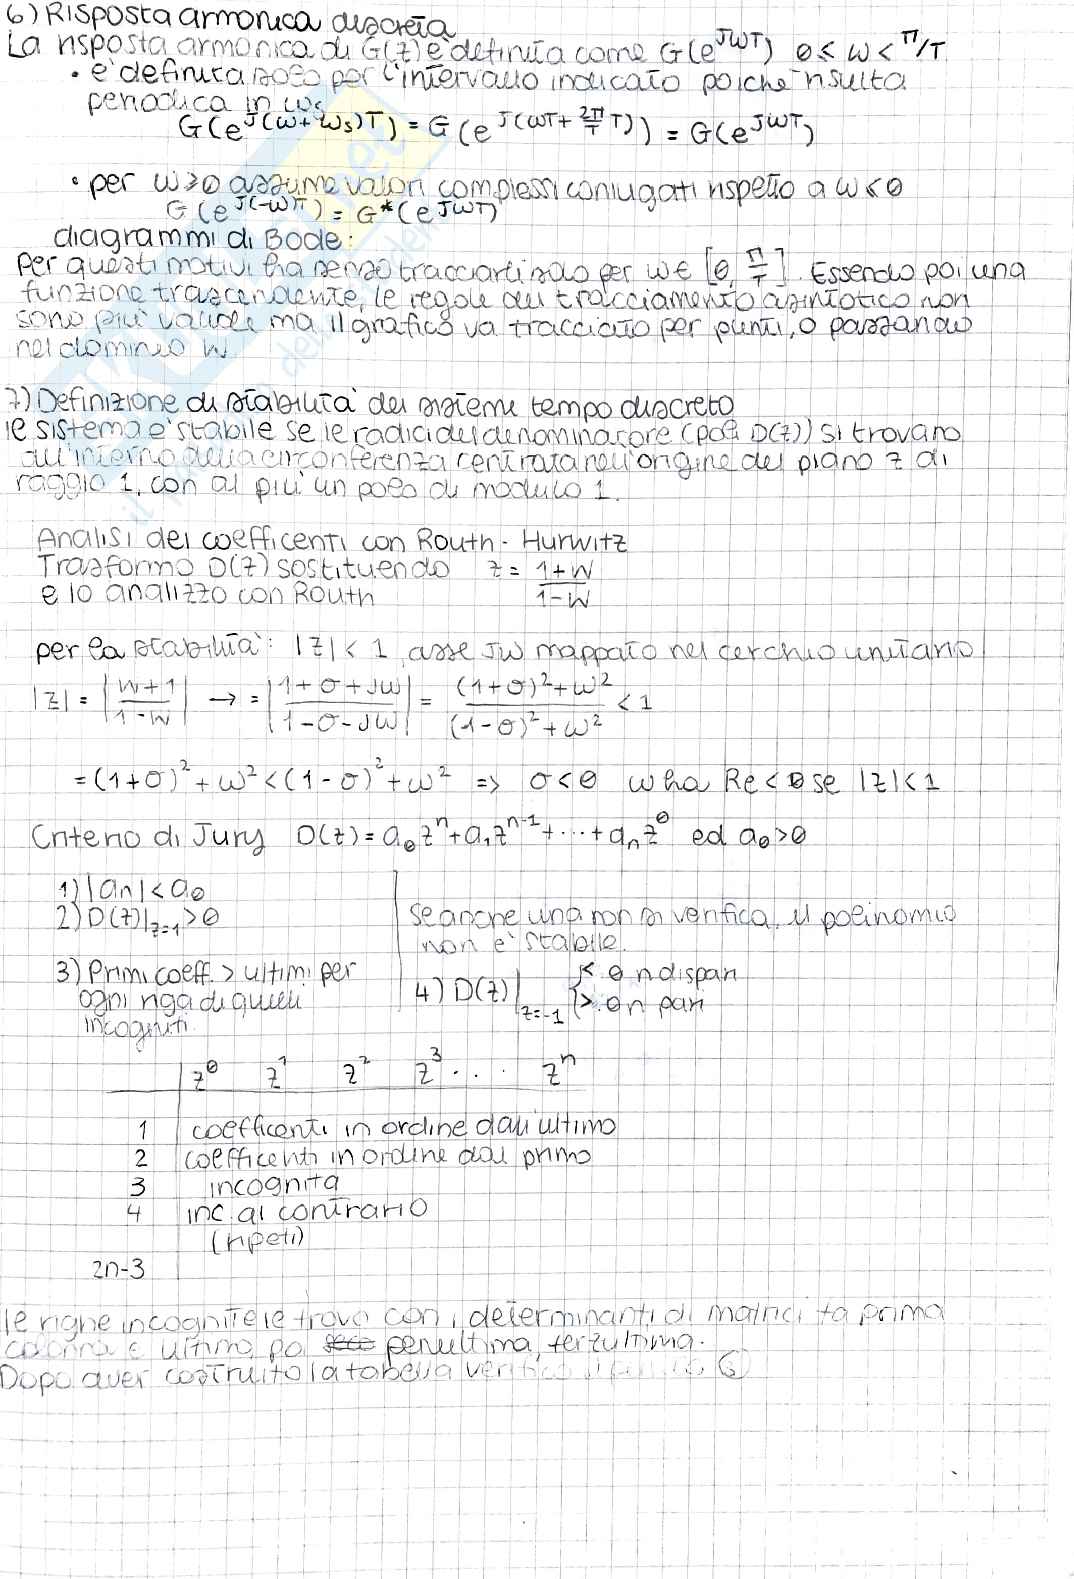 6) Risposta armonica discreta
La risposta armonica di G(z) è definita come G(e^{jωT}) 0 ≤ ω < π/T
• è definita solo per l'intervallo indicato poichè risulta
periodica in ωs
G(e^{j(ω+ωs)T}) = G(e^{j(ωT + 2π/T T)}) = G(e^{jωT})
• per ω≥0 assume valori complessi coniugati rispetto a ω<0
G(e^{j(-ω)T}) = G*(e^{jωT})
diagrammi di Bode:
per questi motivi ha senso tracciarli solo per ω∈[0, π/T]. Essendo poi una
funzione trascendente, le regole del tracciamento asintotico non
sono più valide ma il grafico va tracciato per punti, o passando
nel dominio w
7) Definizione di stabilità dei sistemi tempo discreto
il sistema è stabile se le radici del denominatore (poli D(z)) si trovano
all'interno della circonferenza centrata nell'origine del piano z di
raggio 1, con al più un polo di modulo 1.
Analisi dei coefficenti con Routh - Hurwitz
Trasformo D(z) sostituendo z = 1+w / 1-w
e lo analizzo con Routh
per la stabilità: |z| < 1, asse jw mappato nel cerchio unitario
|z| = |w+1 / 1-w| → = |1+σ+jω / 1-σ-jω| = (1+σ)²+ω² / (1-σ)²+ω² < 1
= (1+σ)² + ω² < (1-σ)² + ω² => σ<0 w ha Re<0 se |z|<1
Criterio di Jury D(z) = a₀zⁿ + a₁zⁿ⁻¹ + ... + aₙz⁰ ed a₀>0
1) |an| < a₀
2) D(z)|z=1 > 0
3) Primi coeff. > ultimi per
ogni riga di quelli
incogniti.
se anche una non si verifica, il polinomio
non è stabile.
4) D(z)|z=-1 { < 0 n dispari
> 0 n pari
z⁰ z¹ z² z³ ... zⁿ
1 coefficenti in ordine dall'ultimo
2 coefficenti in ordine dal primo
3 incognita
4 inc. al contrario
(ripeti)
2n-3
le righe incognite le trovo con i determinanti di matrici tra prima
colonna e ultima, poi penultima, terzultima.
Dopo aver costruito la tabella verifico